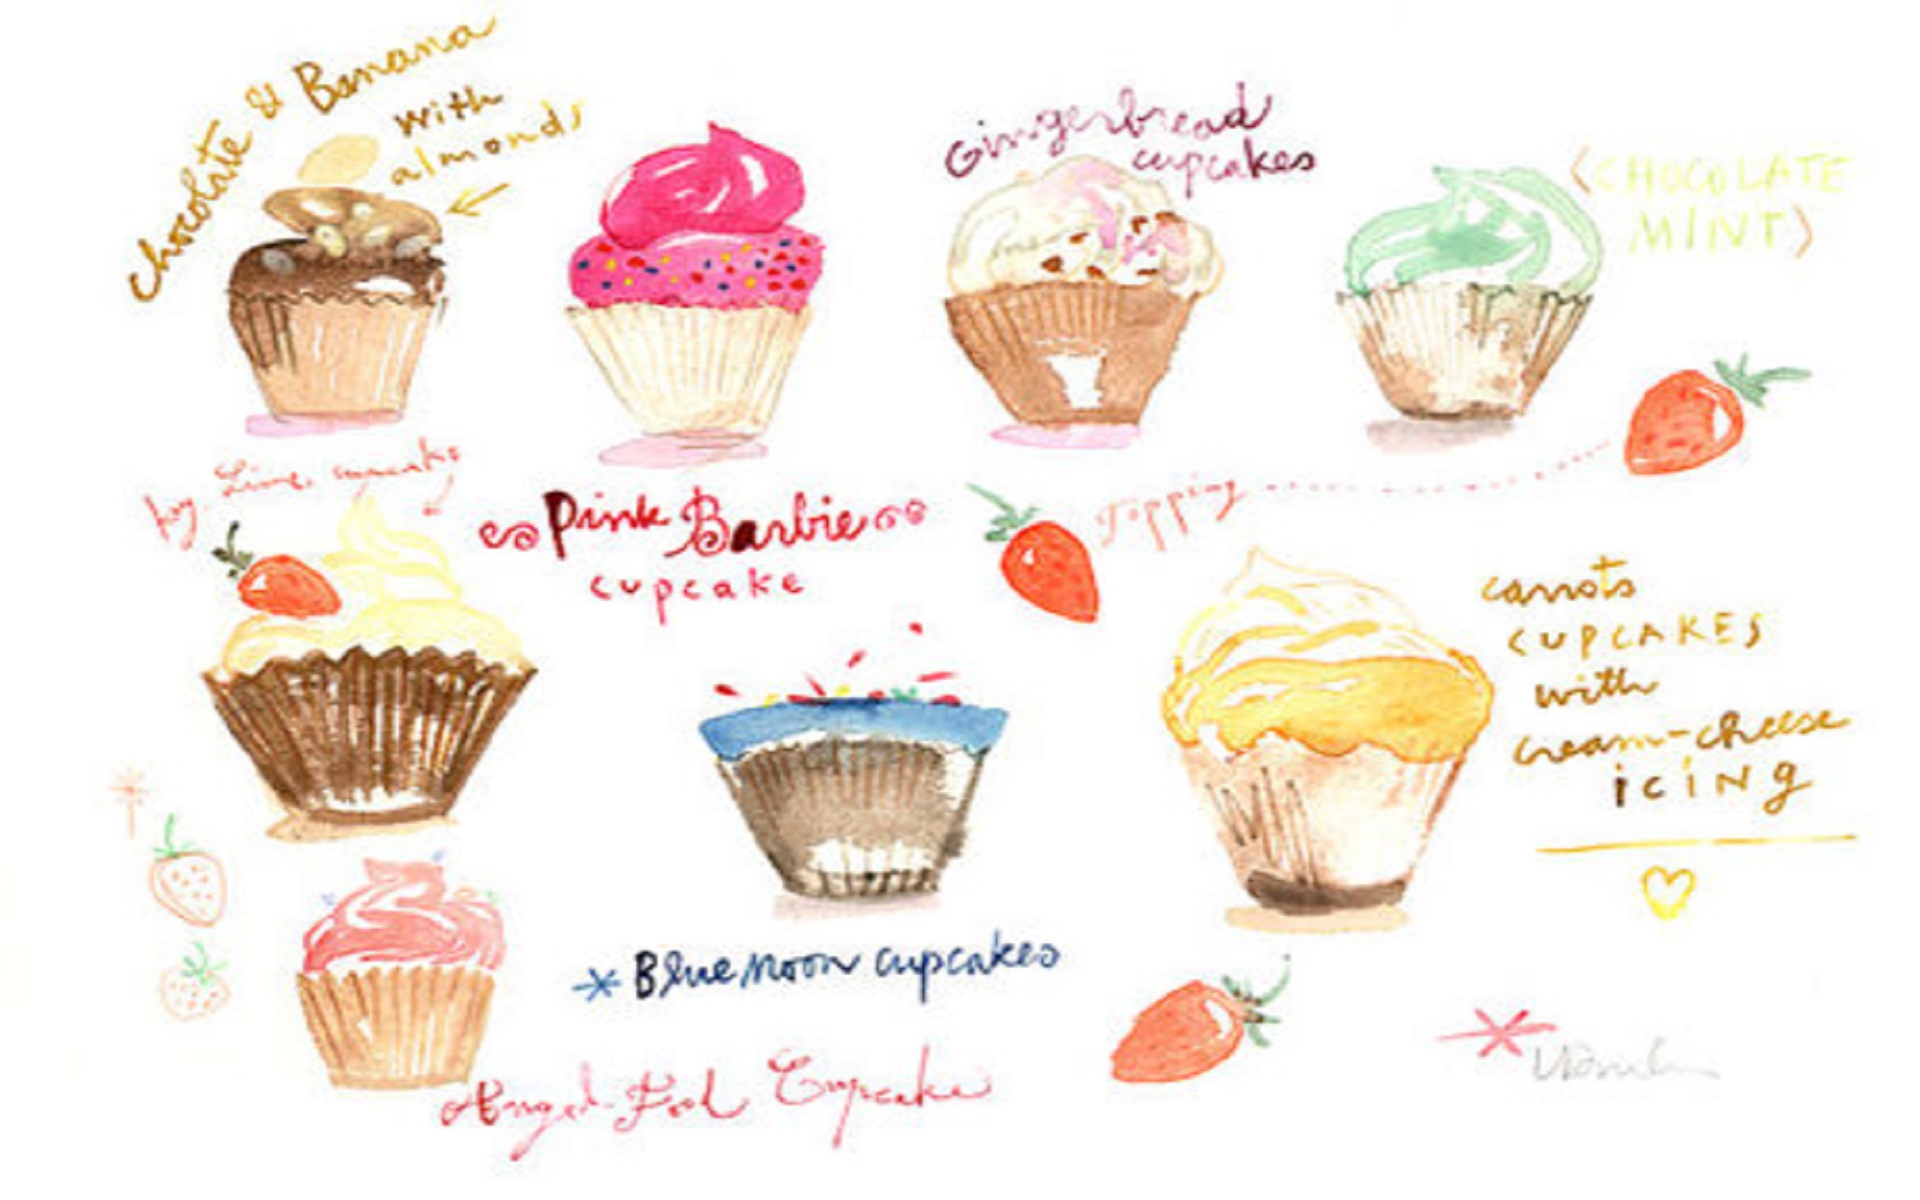 Chocolate & Banana
with
almonds
Gingerbread
cupcakes
<CHOCOLATE
MINT>
Key Lime cupcake
Pink Barbie
cupcake
Topping
carrots
CUPCAKES
with
cream-cheese
iCiNg
Blue Moon cupcakes
Angel Food Cupcake